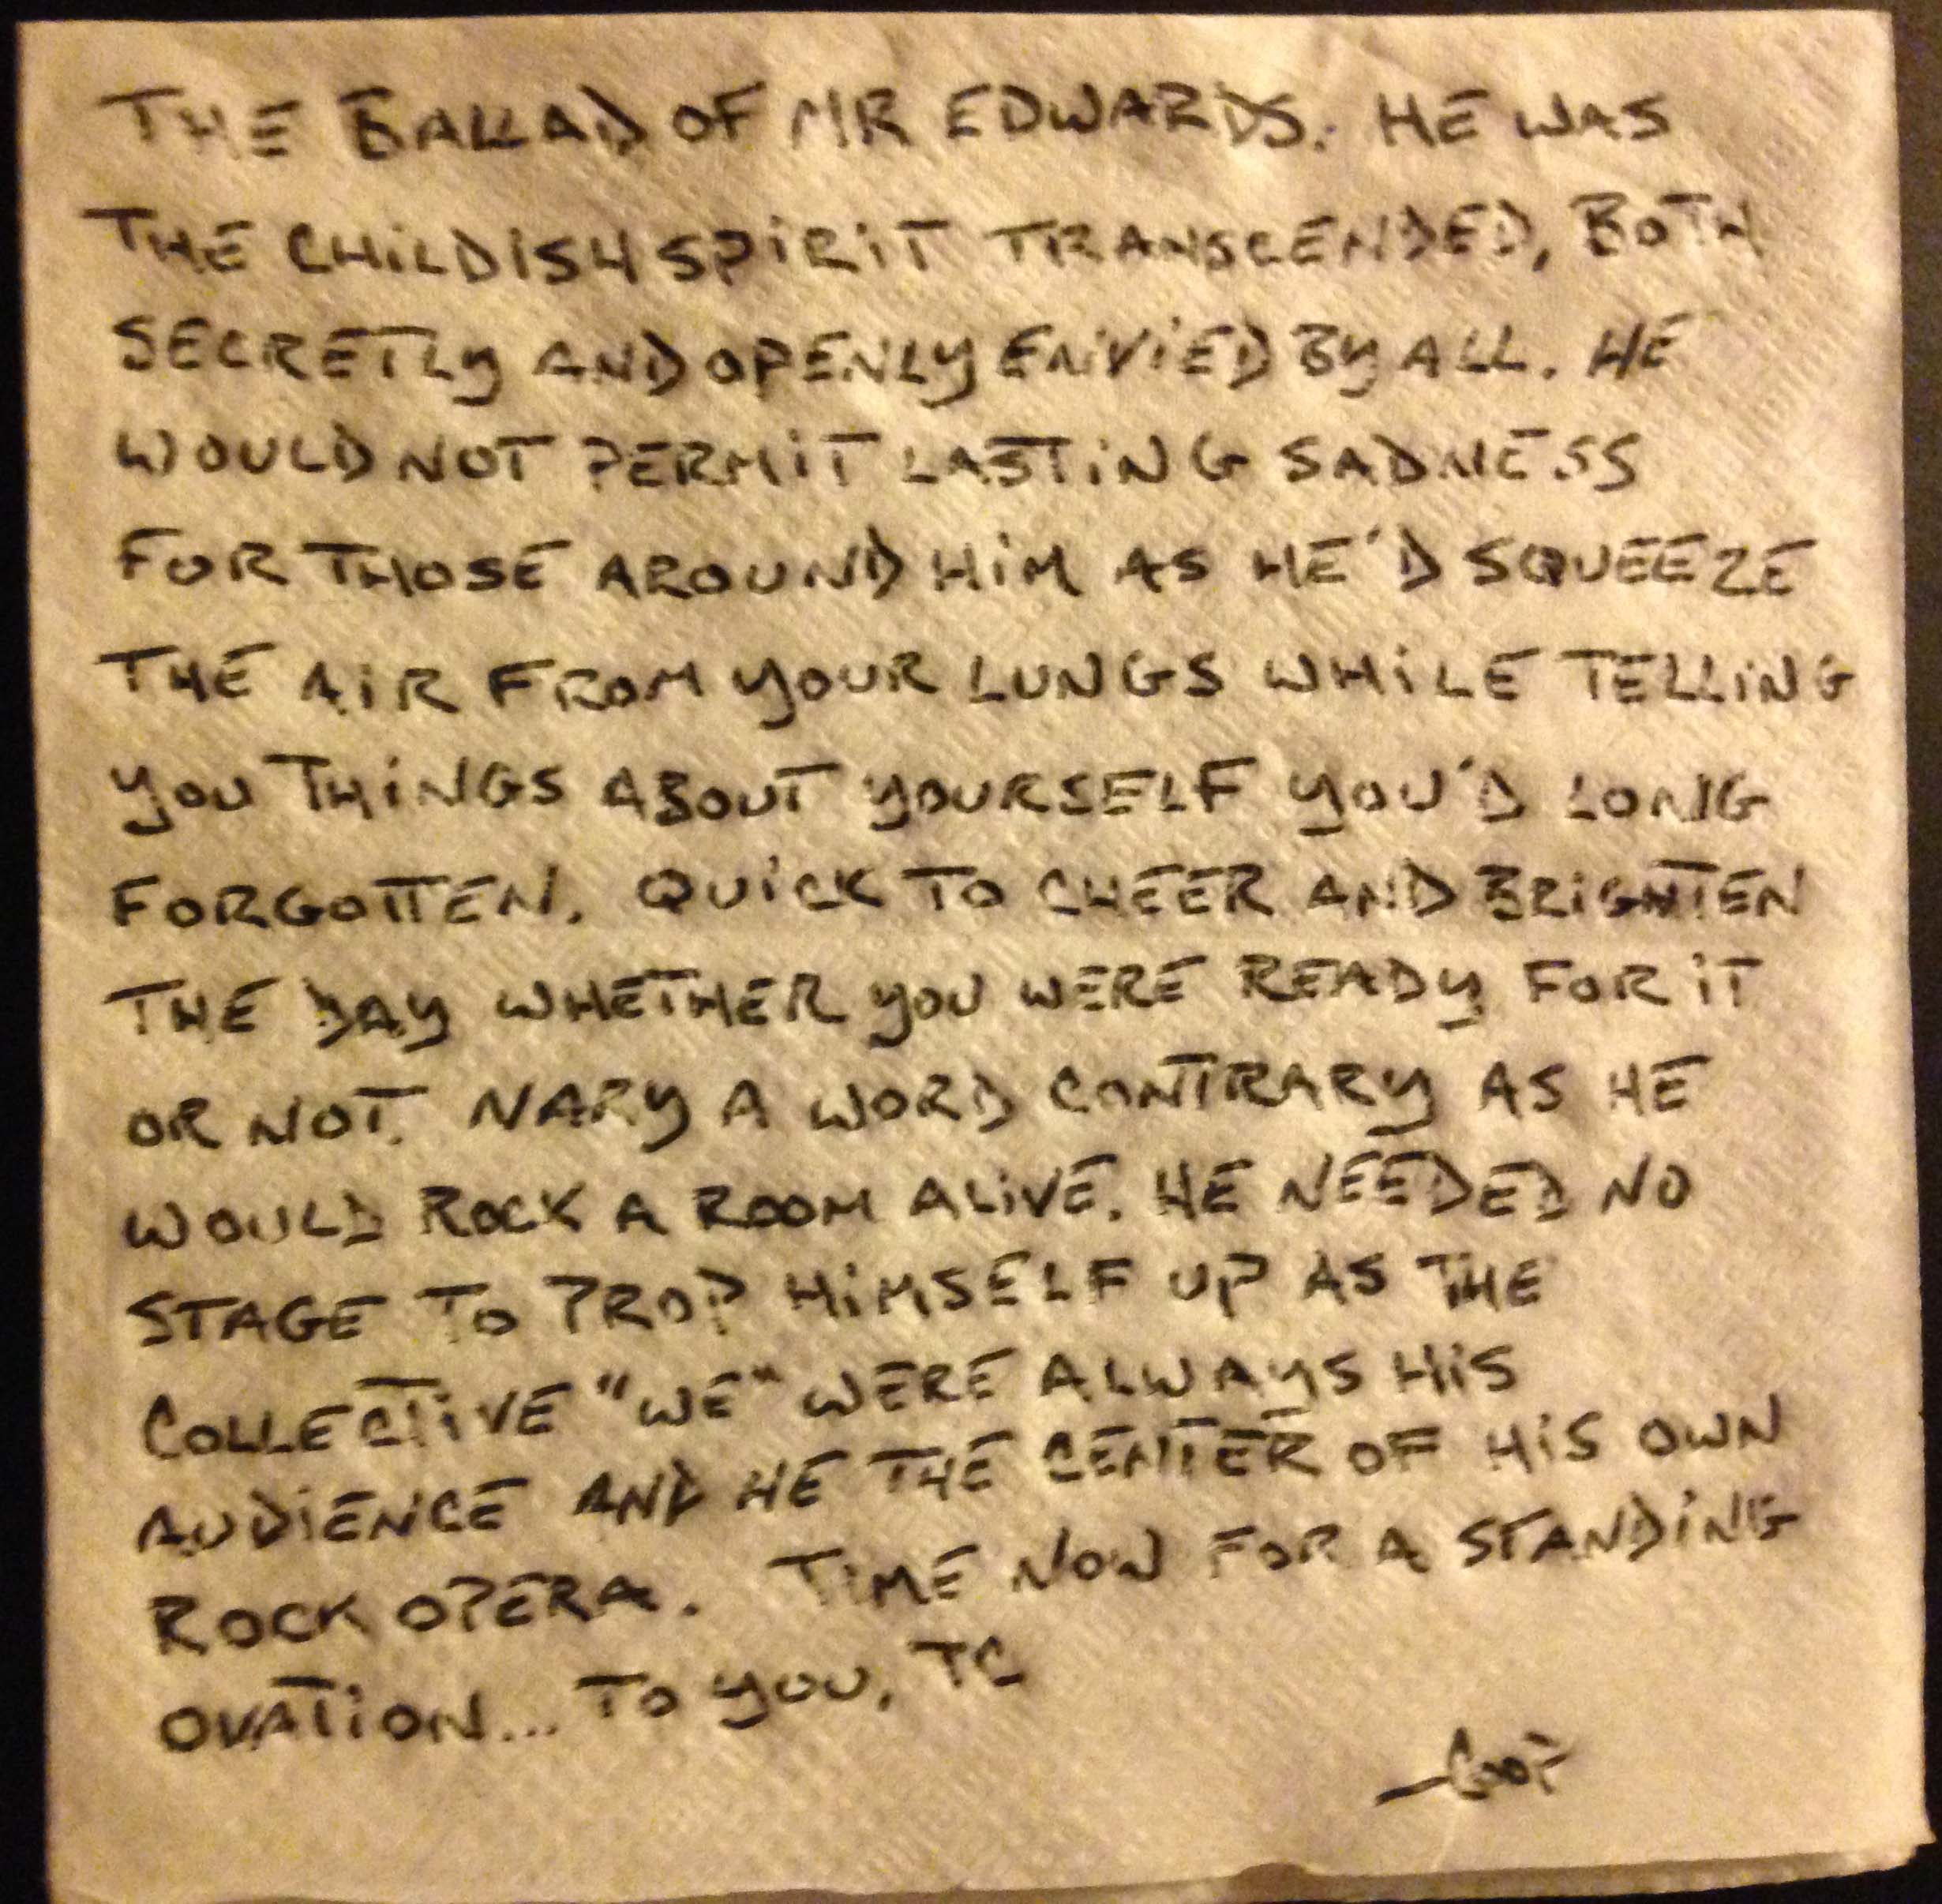 THE BALLAD OF MR EDWARDS. HE WAS
THE CHILDISH SPIRIT TRANSCENDED, BOTH
SECRETLY AND OPENLY ENVIED BY ALL. HE
WOULD NOT PERMIT LASTING SADNESS
FOR THOSE AROUND HIM AS HE'D SQUEEZE
THE AIR FROM YOUR LUNGS WHILE TELLING
YOU THINGS ABOUT YOURSELF YOU'D LONG
FORGOTTEN. QUICK TO CHEER AND BRIGHTEN
THE DAY WHETHER YOU WERE READY FOR IT
OR NOT. NARY A WORD CONTRARY AS HE
WOULD ROCK A ROOM ALIVE. HE NEEDED NO
STAGE TO PROP HIMSELF UP AS THE
COLLECTIVE "WE" WERE ALWAYS HIS
AUDIENCE AND HE THE CENTER OF HIS OWN
ROCK OPERA. TIME NOW FOR A STANDING
OVATION... TO YOU, TC
—COOP